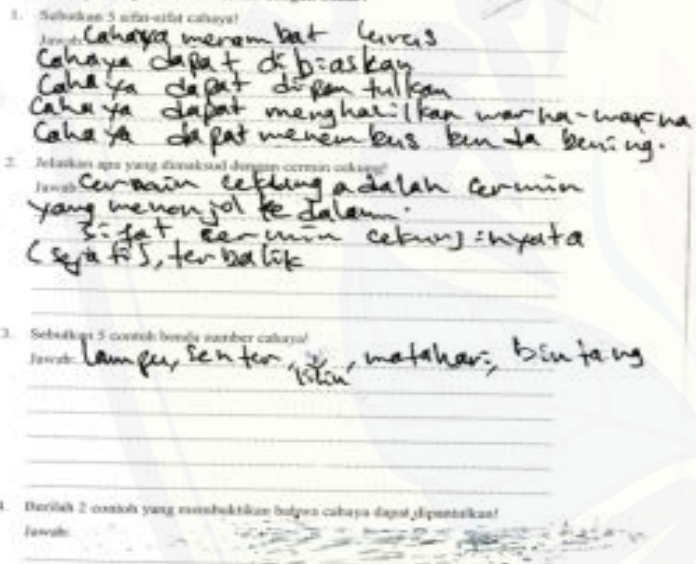 1. Sebutkan 5 sifat-sifat cahaya!
Jawab: Cahaya merambat lurus
Cahaya dapat dibiaskan
Cahaya dapat dipantulkan
Cahaya dapat menghasilkan warna-warna
Cahaya dapat menembus benda bening.
2. Jelaskan apa yang dimaksud dengan cermin cekung!
Jawab: Cermin cekung adalah cermin
yang menonjol ke dalam.
Sifat cermin cekung: nyata
(sejati), terbalik
3. Sebutkan 5 contoh benda sumber cahaya!
Jawab: lampu, senter, lilin, matahari, bintang
4. Berilah 2 contoh yang membuktikan bahwa cahaya dapat dipantulkan!
Jawab: